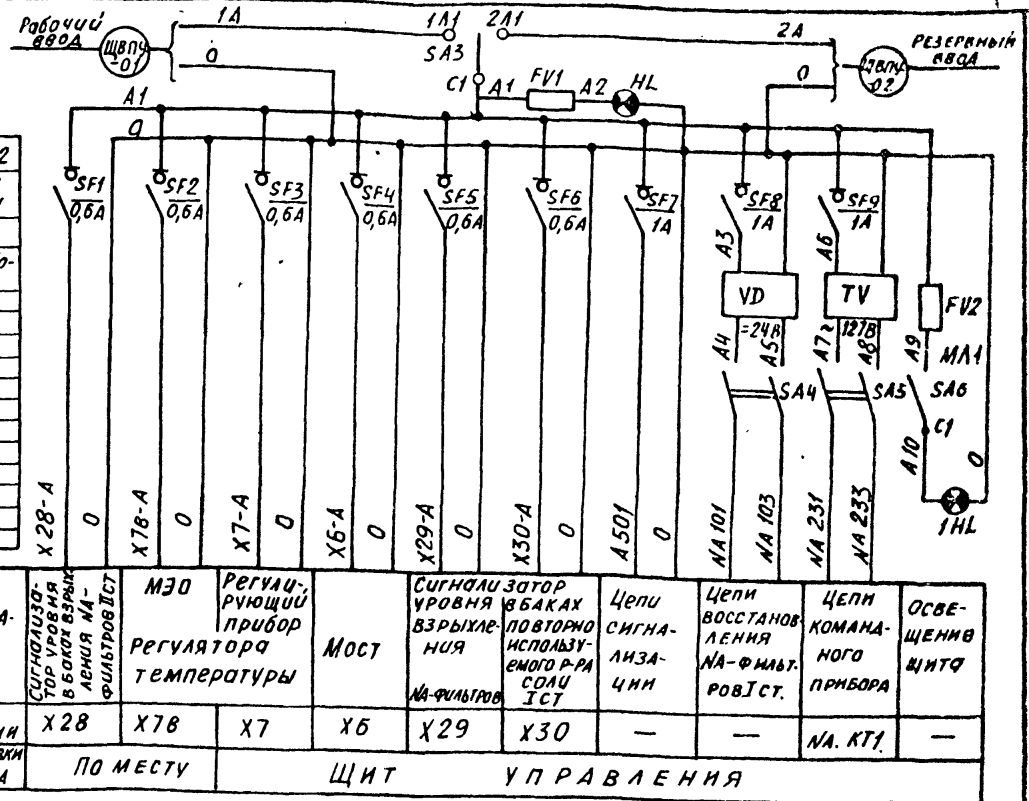 Рабочий
ввод
ЩВПУ
-01
1А
0
1Л1
2Л1
SA3
2А
0
РЕЗЕРВНЫЙ
ВВОД
ЩВПУ
-02
С1
А1
FV1
А2
HL
А1
0
SF1
0,6А
SF2
0,6А
SF3
0,6А
SF4
0,6А
SF5
0,6А
SF6
0,6А
SF7
1А
SF8
1А
SF9
1А
А3
А6
VD
TV
FV2
=24В
127В
А4
А5
А7~
А8
А9
МЛ1
SA4
SA5
SA6
С1
А10
0
1HL
Х28-А
0
Х7в-А
0
Х7-А
0
Х6-А
0
Х29-А
0
Х30-А
0
А501
0
NA101
NA103
NA231
NA233
Сигнализа-
тор уровня
в баках взрых-
ления NA-
фильтров IIст
МЭО
Регули-
рующий
прибор
Регулятора
температуры
Мост
Сигнализатор
уровня в баках
взрыхле-
ния
NA-фильтров
повторно
использу-
емого р-ра
соли
I ст
Цепи
сигна-
лиза-
ции
Цепи
восстанов-
ления
NA-фильт.
ров I ст.
Цепи
команд-
ного
прибора
Осве-
щение
щита
Х28
Х7в
Х7
Х6
Х29
Х30
—
—
NA. КТ1
—
По месту
Щит управления